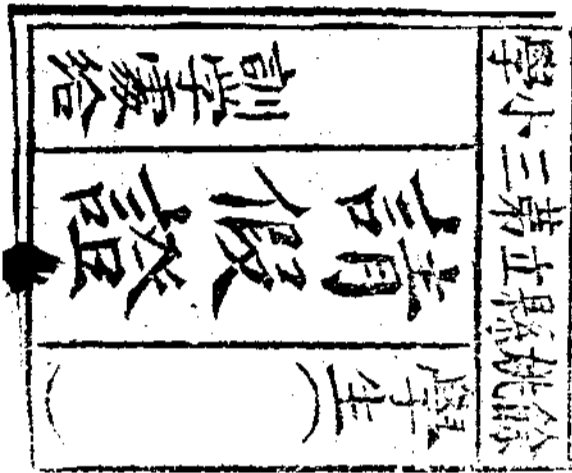 餘姚縣立第三小學
學生（　）
請假證
訓導處給